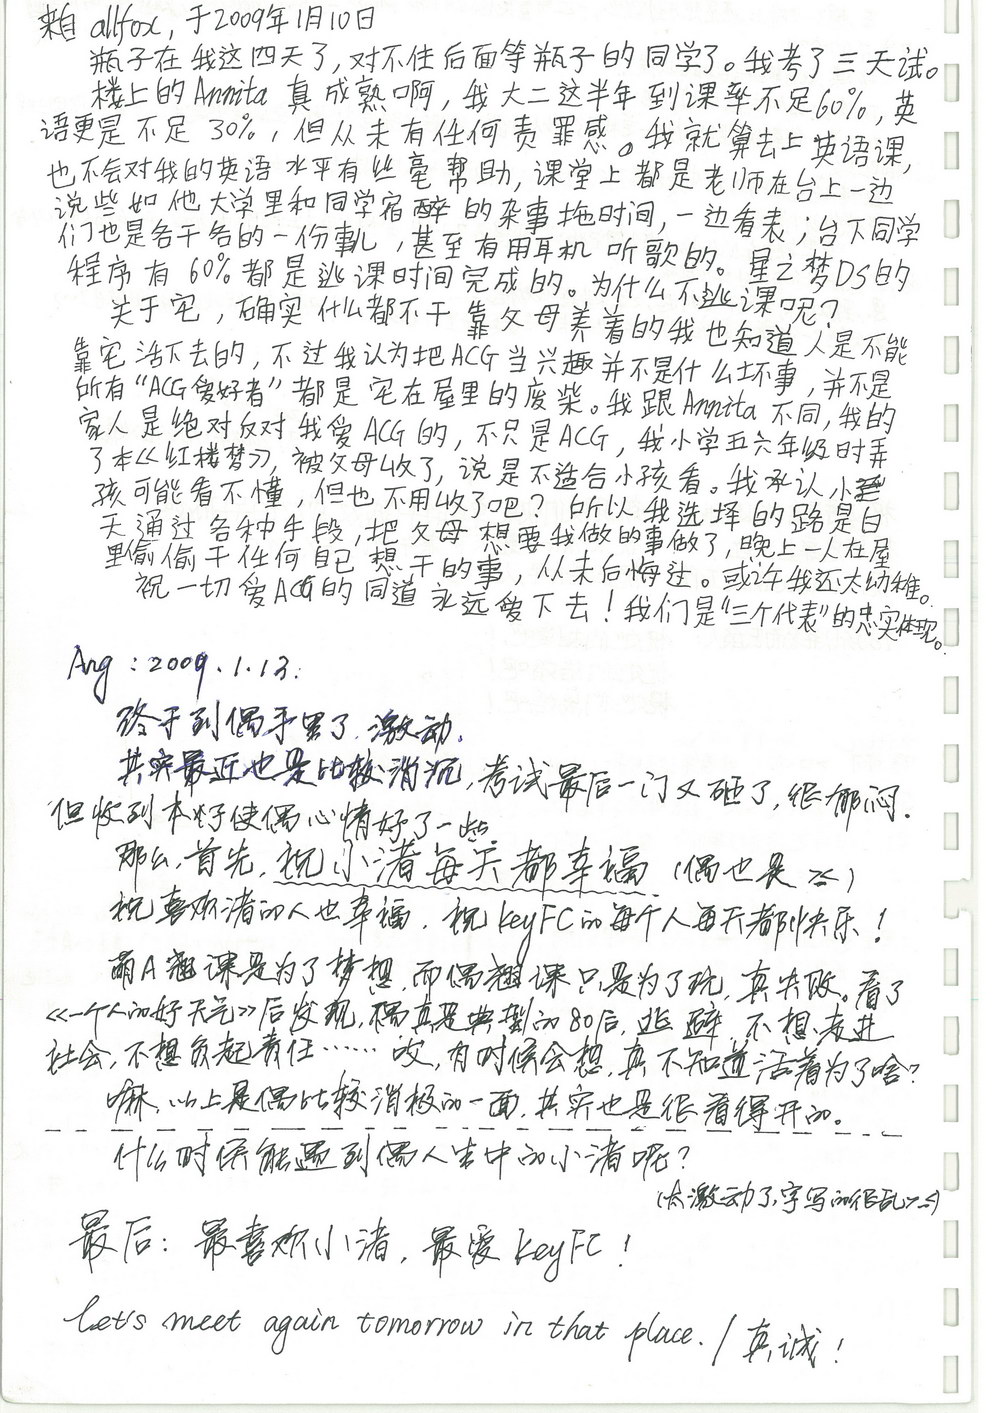 来自allfox,于2009年1月10日
瓶子在我这四天了,对不住后面等瓶子的同学了。我考了三天试。
楼上的Annita真成熟啊,我大二这半年到课率不足60%,英
语更是不足30%,但从未有任何责罪感。我就算去上英语课,
也不会对我的英语水平有丝毫帮助,课堂上都是老师在台上一边
说些如他大学里和同学宿醉的杂事拖时间,一边看表;台下同学
们也是各干各的一份事儿,甚至有用耳机听歌的。星之梦DS的
程序有60%都是逃课时间完成的。为什么不逃课呢?
关于宅,确实什么都不干靠父母养着的我也知道人是不能
靠宅活下去的,不过我认为把ACG当兴趣并不是什么坏事,并不是
所有“ACG爱好者”都是宅在屋里的废柴。我跟Annita不同,我的
家人是绝对反对我爱ACG的,不只是ACG,我小学五六年级时弄
了本《红楼梦》,被父母收了,说是不适合小孩看。我承认小
孩可能看不懂,但也不用收了吧?所以我选择的路是白
天通过各种手段,把父母想要我做的事做了,晚上一人在屋
里偷偷干任何自己想干的事,从未后悔过。或许我还太幼稚。
祝一切爱ACG的同道永远爱下去!我们是“三个代表”的忠实体现。
Ang:2009.1.13.
终于到偶手里了,激动.
其实最近也是比较消沉,考试最后一门又砸了,很郁闷.
但收到本子使偶心情好了一些
那么,首先,祝小渚每天都幸福(偶也是><)
祝喜欢渚的人也幸福.祝KeyFC的每个人每天都快乐!
萌A翘课是为了梦想,而偶翘课只是为了玩,真失败。看了
《一个人的好天气》后发现,偶真是典型的80后,逃避,不想走进
社会,不想负起责任……哎,有时候会想,真不知道活着为了啥?
嘛,以上是偶比较消极的一面,其实也是很看得开的。
什么时候能遇到偶人生中的小渚呢?
(太激动了,字写的很乱><)
最后:最喜欢小渚,最爱KeyFC!
Let's meet again tomorrow in that place./真诚!